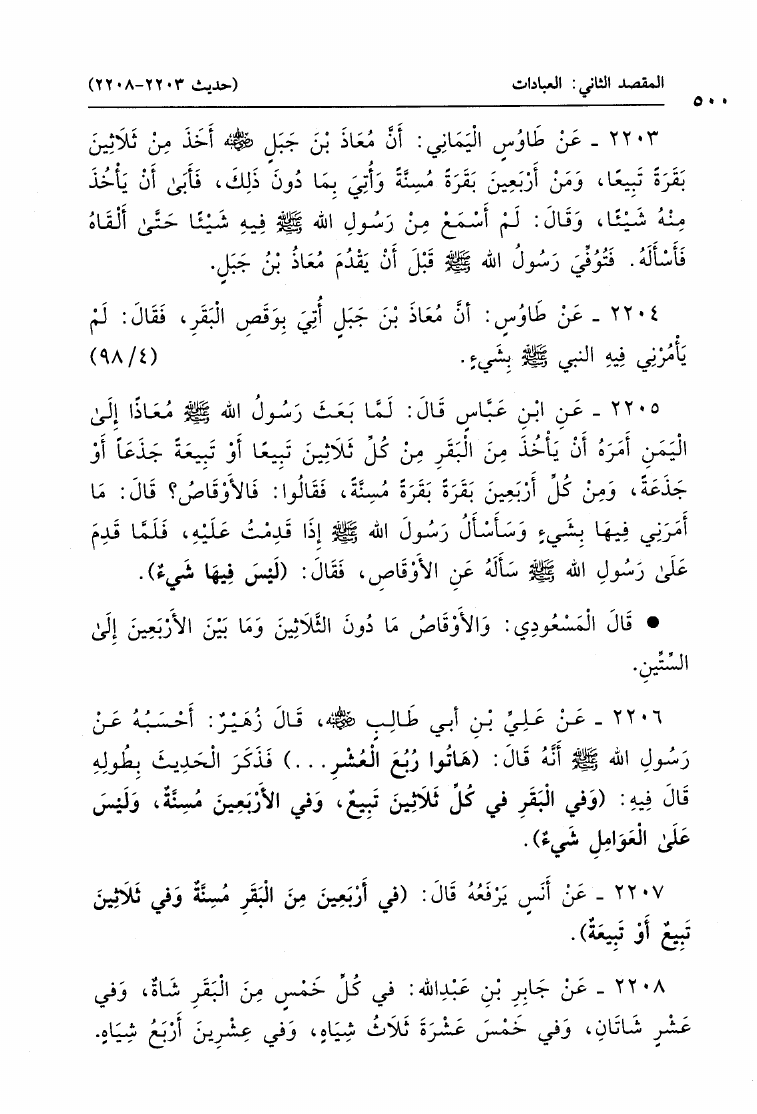 المقصد الثاني: العبادات (حديث ٢٢٠٣-٢٢٠٨)
٥٠٠
٢٢٠٣ - عَنْ طَاوُسٍ الْيَمَانِي: أَنَّ مُعَاذَ بْنَ جَبَلٍ ﵁ أَخَذَ مِنْ ثَلَاثِينَ
بَقَرَةً تَبِيعًا، وَمَنْ أَرْبَعِينَ بَقَرَةً مُسِنَّةً وَأُتِيَ بِمَا دُونَ ذَلِكَ، فَأَبَىٰ أَنْ يَأْخُذَ
مِنْهُ شَيْئًا، وَقَالَ: لَمْ أَسْمَعْ مِنْ رَسُولِ الله ﷺ فِيهِ شَيْئًا حَتَّىٰ أَلْقَاهُ
فَأَسْأَلَهُ. فَتُوُفِّيَ رَسُولُ الله ﷺ قَبْلَ أَنْ يَقْدُمَ مُعَاذُ بْنُ جَبَلٍ.
٢٢٠٤ - عَنْ طَاوُسٍ: أنَّ مُعَاذَ بْنَ جَبَلٍ أُتِيَ بِوَقَصِ الْبَقَرِ، فَقَالَ: لَمْ
يَأْمُرْنِي فِيهِ النبي ﷺ بِشَيْءٍ. (٩٨/٤)
٢٢٠٥ - عَنِ ابْنِ عَبَّاسٍ قَالَ: لَمَّا بَعَثَ رَسُولُ الله ﷺ مُعَاذًا إِلَىٰ
الْيَمَنِ أَمَرَهُ أَنْ يَأْخُذَ مِنَ الْبَقَرِ مِنْ كُلِّ ثَلَاثِينَ تَبِيعًا أَوْ تَبِيعَةً جَذَعاً أَوْ
جَذَعَةً، وَمِنْ كُلِّ أَرْبَعِينَ بَقَرَةً بَقَرَةً مُسِنَّةً، فَقَالُوا: فَالأَوْقَاصُ؟ قَالَ: مَا
أَمَرَنِي فِيهَا بِشَيْءٍ وَسَأَسْأَلُ رَسُولَ الله ﷺ إِذَا قَدِمْتُ عَلَيْهِ، فَلَمَّا قَدِمَ
عَلَىٰ رَسُولِ الله ﷺ سَأَلَهُ عَنِ الأَوْقَاصِ، فَقَالَ: (لَيْسَ فِيهَا شَيءٌ).
● قَالَ الْمَسْعُودِي: وَالأَوْقَاصُ مَا دُونَ الثَّلَاثِينَ وَمَا بَيْنَ الأَرْبَعِينَ إِلَىٰ
السِّتِّينِ.
٢٢٠٦ - عَنْ عَلِيِّ بْنِ أَبي طَالِبٍ ﵁، قَالَ زُهَيْرٌ: أَحْسَبُهُ عَنْ
رَسُولِ الله ﷺ أَنَّهُ قَالَ: (هَاتُوا رُبُعَ الْعُشْرِ...) فَذَكَرَ الْحَدِيثَ بِطُولِهِ
قَالَ فِيهِ: (وَفي الْبَقَرِ في كُلِّ ثَلَاثِينَ تَبِيعٌ، وَفي الأَرْبَعِينَ مُسِنَّةٌ، وَلَيْسَ
عَلَىٰ الْعَوَامِلِ شَيءٌ).
٢٢٠٧ - عَنْ أَنَسٍ يَرْفَعُهُ قَالَ: (في أَرْبَعِينَ مِنَ الْبَقَرِ مُسِنَّةٌ وَفي ثَلَاثِينَ
تَبِيعٌ أَوْ تَبِيعَةٌ).
٢٢٠٨ - عَنْ جَابِرِ بْنِ عَبْدِالله: في كُلِّ خَمْسٍ مِنَ الْبَقَرِ شَاةٌ، وَفي
عَشْرٍ شَاتَانِ، وَفي خَمْسَ عَشْرَةَ ثَلَاثُ شِيَاهٍ، وَفي عِشْرِينَ أَرْبَعُ شِيَاهٍ.